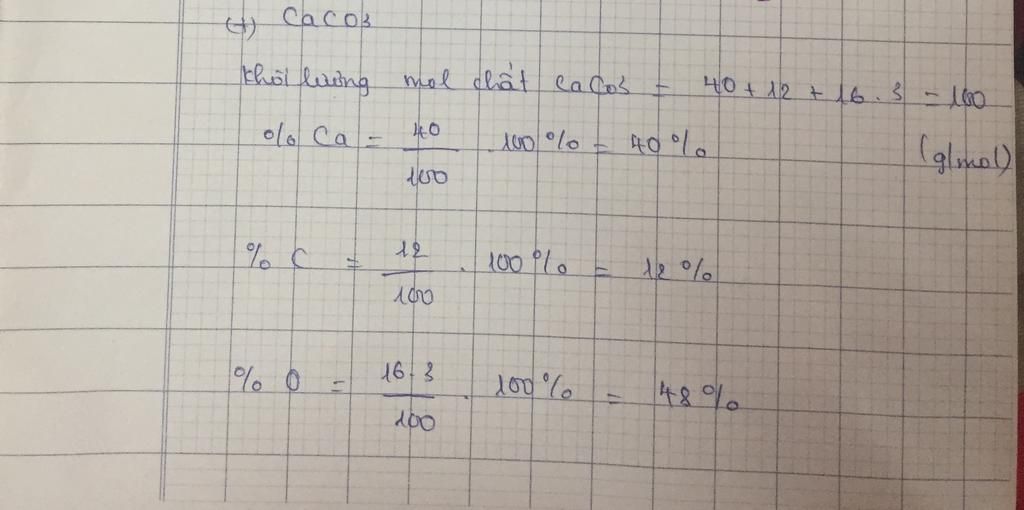 (+) CaCO3
Khối lượng mol chất CaCO3 = 40 + 12 + 16 . 3 = 100
(g/mol)
% Ca = 40/100 . 100% = 40%
% C = 12/100 . 100% = 12%
% O = 16.3/100 . 100% = 48%